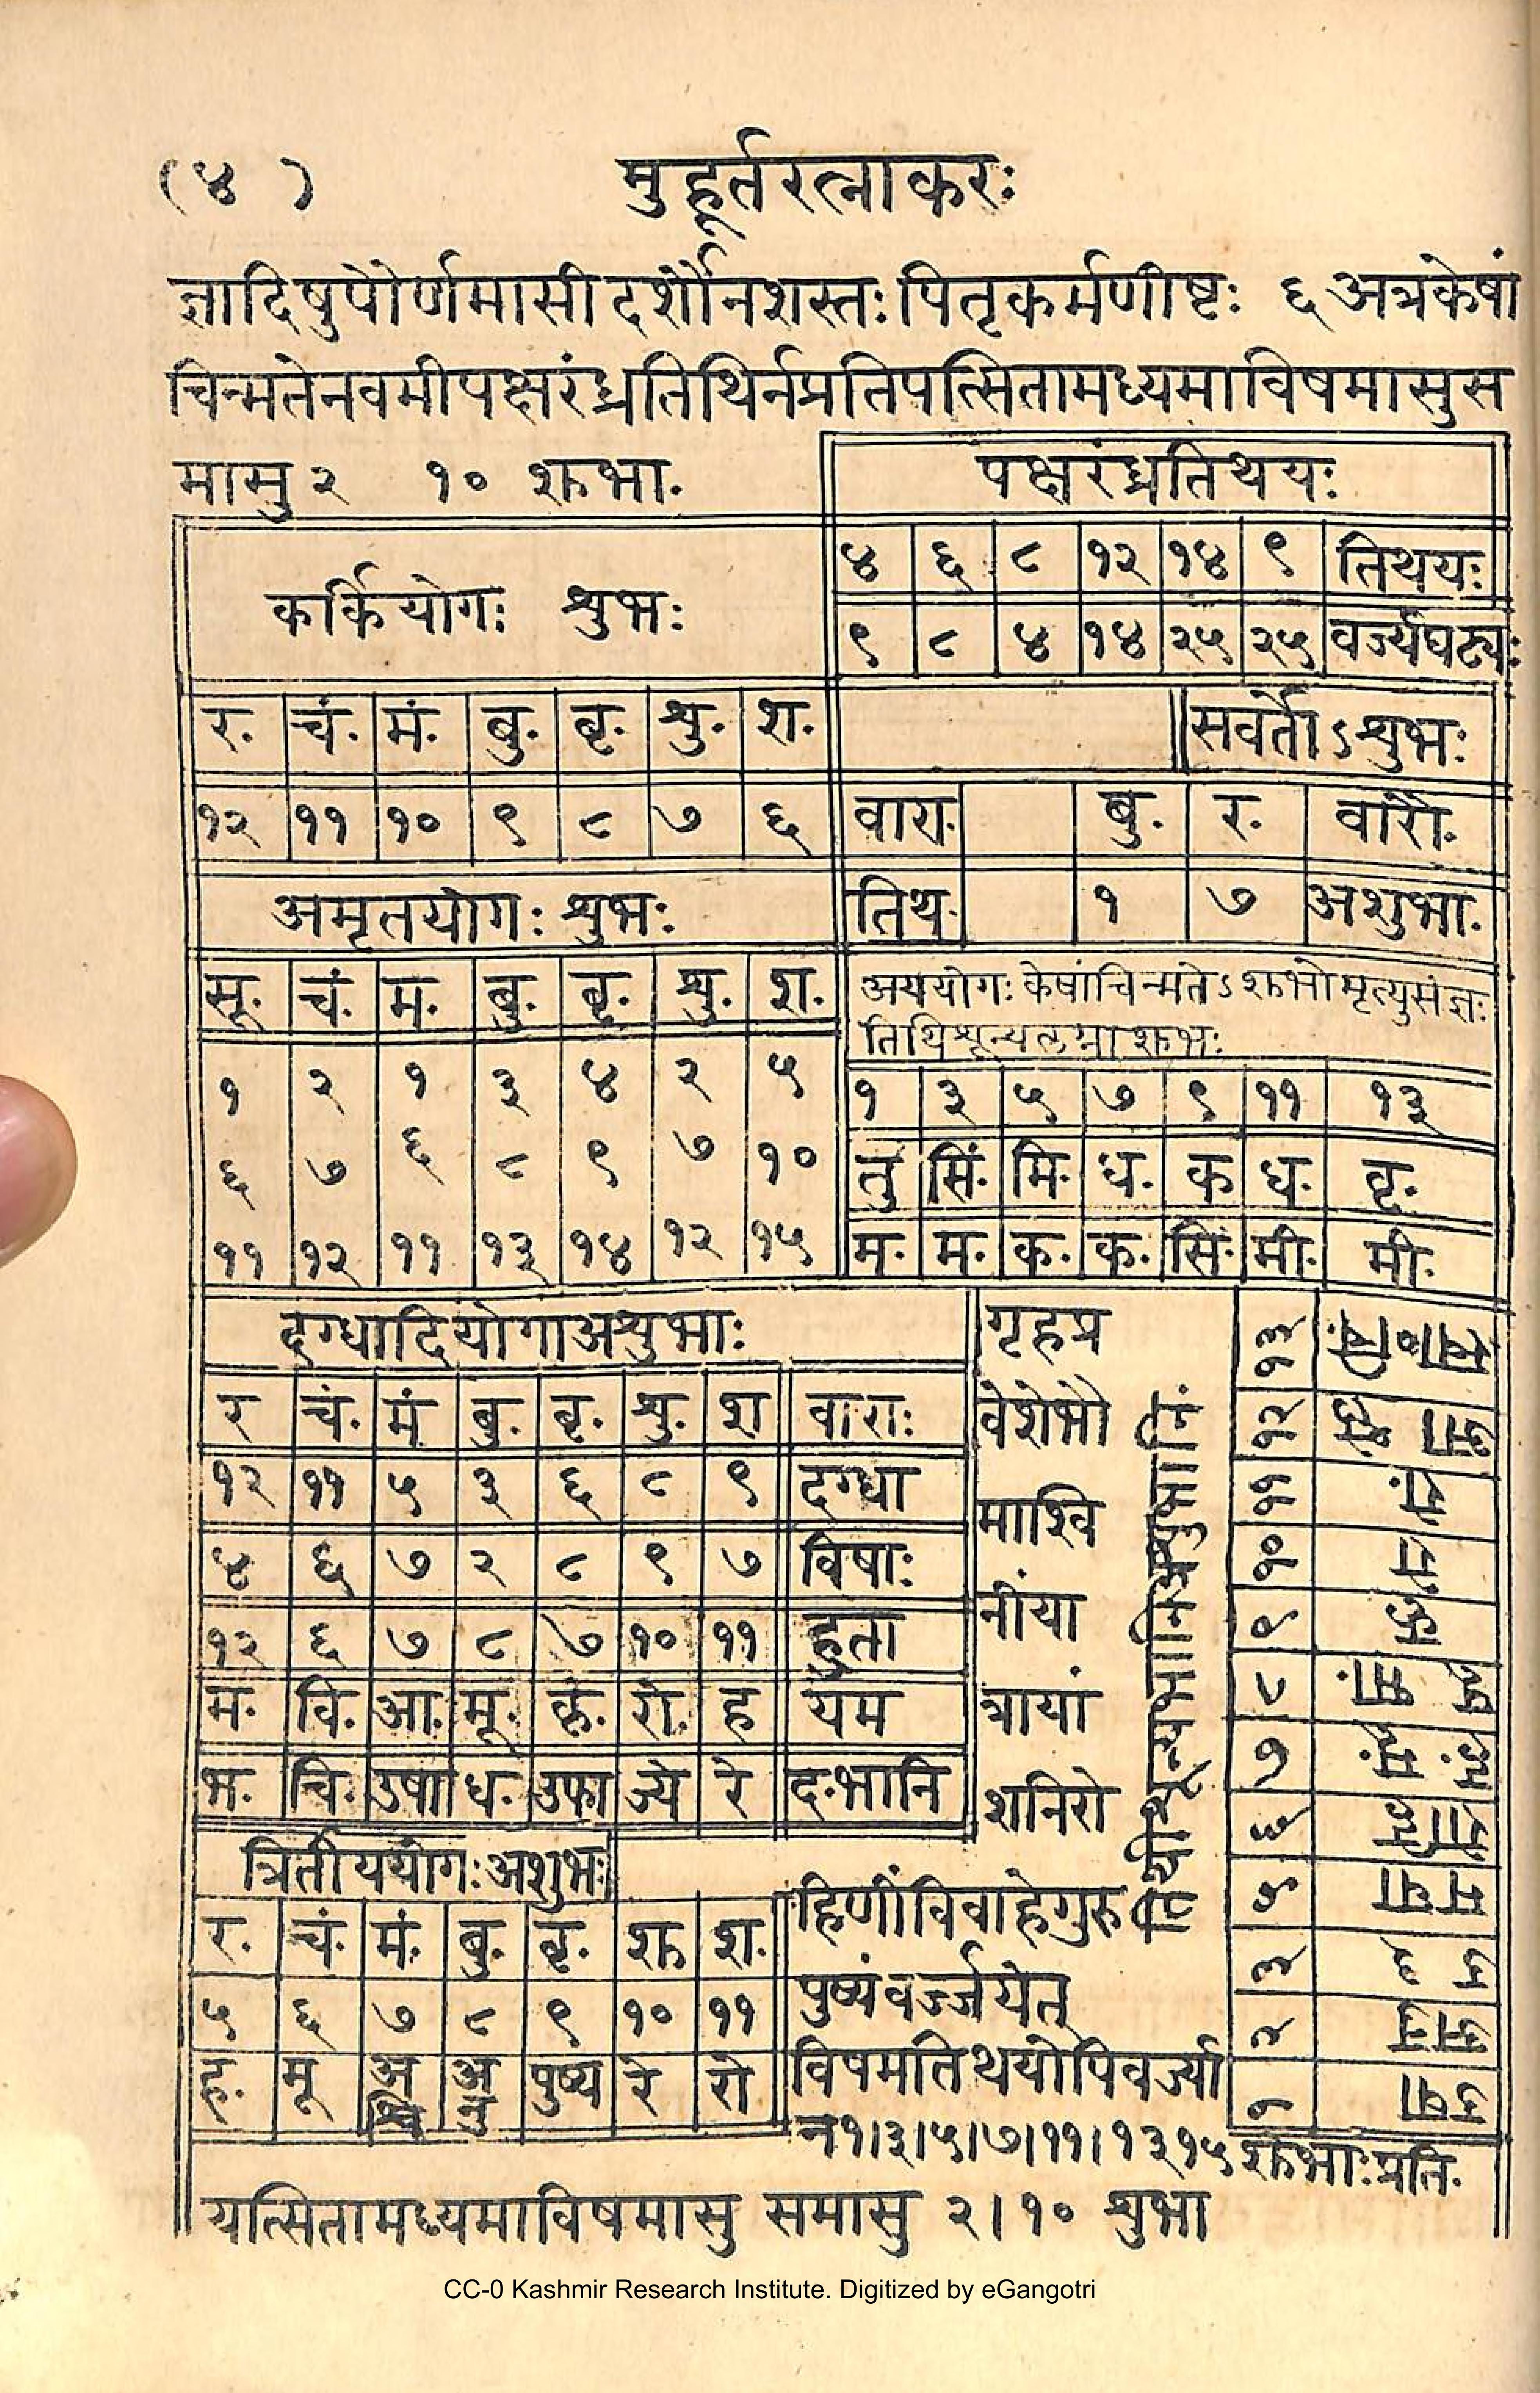 (४) मुहूर्तरत्नाकरः
ज्ञादिषुपौर्णमासीदर्शौनशस्तःपितृकर्मणीष्टः ६ अत्रकेषां
चिन्मतेनवमीपक्षरंध्रतिथिर्नप्रतिपत्सितामध्यमाविषमासुस
मासु २ १० शुभा.
पक्षरंध्रतिथयः
४ ६ ८ १२ १४ ९ तिथयः
९ ८ ४ १४ २५ २५ वर्ज्यघट्यः
कर्कियोगः शुभः
र. चं. मं. बु. वृ. शु. श.
१२ ११ १० ९ ८ ७ ६
सवर्तोऽशुभः
वारा. बु. र. वारौ.
तिथ. १ ७ अशुभा.
अमृतयोगः शुभः
सू. चं. म. बु. वृ. शु. श.
१ २ १ ३ ४ २ ५
६ ७ ६ ८ ९ ७ १०
११ १२ ११ १३ १४ १२ १५
अययोगः केषांचिन्मतेऽशुभोमृत्युसंज्ञः
तिथिशून्यलग्नाशुभः
१ ३ ५ ७ ९ ११ १३
तु सिं. मि. ध. क ध. वृ.
म. म. क. क. सिं. मी. मी.
दग्धादियोगाअशुभाः
र चं. मं बु. वृ. शु. श वाराः
१२ ११ ५ ३ ६ ८ ९ दग्धा
४ ६ ७ २ ८ ९ ७ विषाः
१२ ६ ७ ८ ७ १० ११ हुता
म. वि. आ. मू. कृ. रो. ह यम
भ. चि. उषा ध. उफा ज्ये रे द.भानि
त्रितीययोगःअशुभः
र. चं. मं. बु. वृ. शु श.
५ ६ ७ ८ ९ १० ११
ह. मू अश्वि अनु पुष्य रे रो
गृहप्र
वेशेभौ
माश्वि
नींया
त्रायां
शनिरो
हिणींविवाहेगुरु
पुष्यंवर्ज्जयेत्
विषमतिथयोपिवर्ज्या
न१।३।५।७।११।१३१५शुभाःप्रति.
१३ १२ ११ १० ९ ८ ७ ६ ५ ३ २ १
यत्सितामध्यमाविषमासु समासु २।१० शुभा
CC-0 Kashmir Research Institute. Digitized by eGangotri